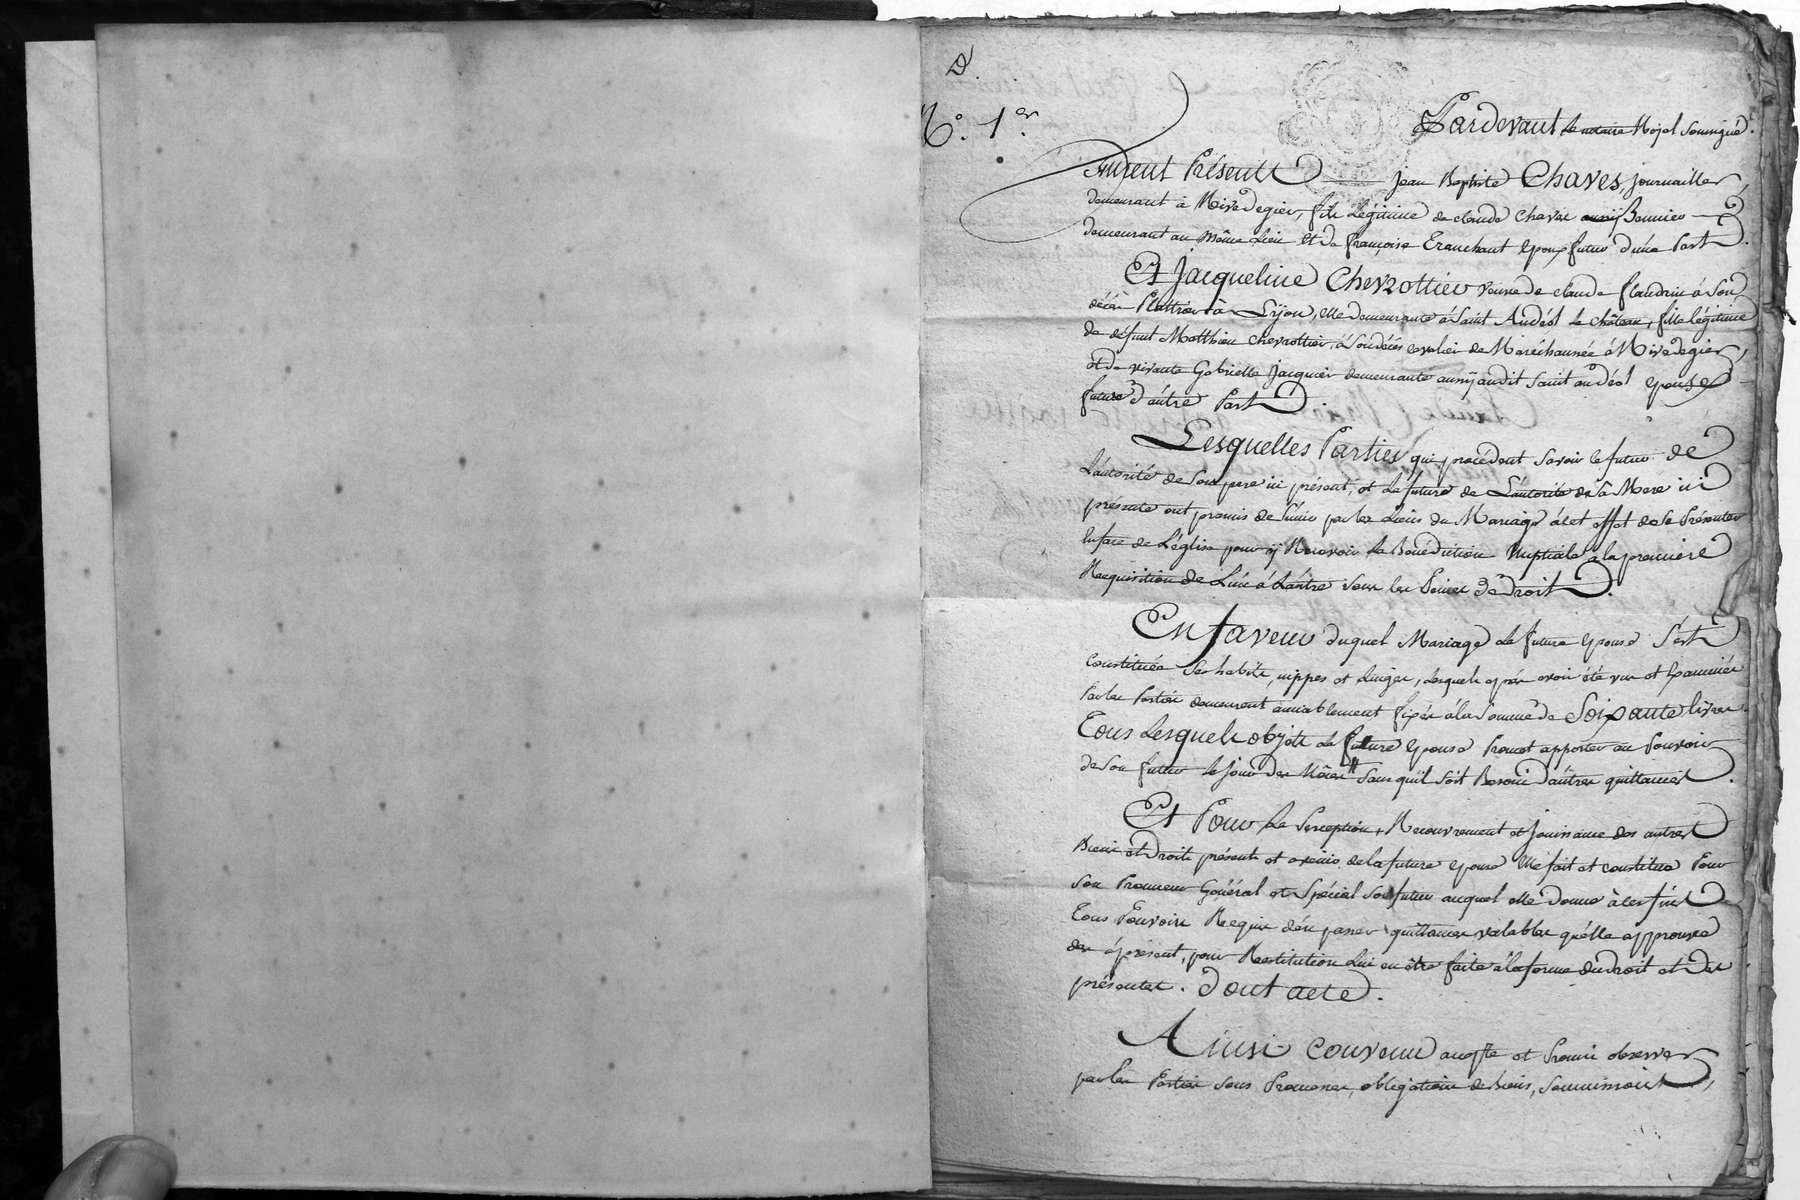 N.° 1.er
Pardevant le notaire Royal soussigné.
Furent Présents Jean Baptiste Chaves, journaillier
demeurant à Rivedegier, fils Légitime de claude Chaves aussy Bennier
demeurant au même Lieu et de françoise Eranchant epoux futur d'une Part.
Et Jacqueline Chevrottier veuve de claude flandrin à Son
décès Plattrier à Lyon, elle demeurante à Saint Andéol le château, fille légitime
de défunt Matthieu chevrottier, à Son décès cavalier de Maréchaussée à Rivedegier,
et de vivante Gabrielle Jacquier demeurante aussy audit saint andéol epouse
future d'autre Part.
Lesquelles Parties qui procédent savoir le futur de
L'autorité de Son pere ici présent, et La future de L'autorité de Sa Mere ici
présente ont promis de S'unir par les Liens du Mariage à cet effet de Se Présenter
en face de L'église pour y Recevoir La Bénédiction Nuptiale a la premiere
Requisition de L'un à L'autre sous les Peines de Droit.
En faveur duquel Mariage La future epouse S'est
Constituée Ses habits, nippes et Linges, Lesquels après avoir été vus et Examinés
Par les Parties demeurent amiablement fixés à la Somme de Soixante livres.
Tous Lesquels objets La future epouse Promet apporter au Pouvoir
de Son futur le jour des Nôces sans qu'il soit Besoin d'autres quittances.
Et Pour La Perception, Recouvrement et Jouissance des autres
Biens et Droits présents et avenir de la future epouse Elle fait et constitue Pour
Son Procureur Général et Spécial Son futur auquel elle donne à ces fins
Tous Pouvoirs Requis d'en passer quittances valables qu'elle approuve
des à présent, pour Restitution Lui en être faite à la forme du Droit et des
présentes. Dont acte.
Ainsi convenu accepté et Promis observer
par les Parties sous Promesses, obligations de Biens, Soumissions,